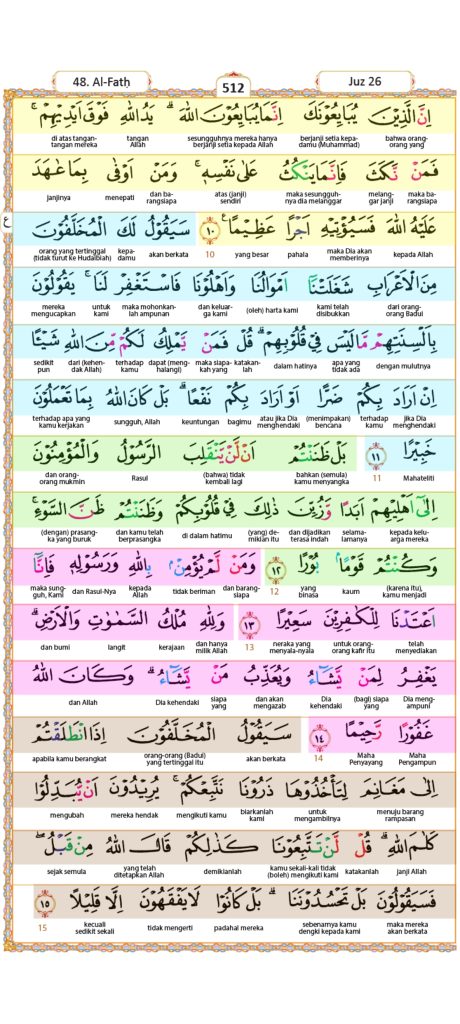 48. Al-Fatḥ
512
Juz 26
اِنَّ الَّذِيْنَ يُبَايِعُوْنَكَ اِنَّمَا يُبَايِعُوْنَ اللّٰهَ ۗ يَدُ اللّٰهِ فَوْقَ اَيْدِيْهِمْ ۚ
bahwa orang-orang yang berjanji setia kepadamu (Muhammad) sesungguhnya mereka hanya berjanji setia kepada Allah tangan Allah di atas tangan-tangan mereka
فَمَنْ نَّكَثَ فَاِنَّمَا يَنْكُثُ عَلٰى نَفْسِهٖ ۚ وَمَنْ اَوْفٰى بِمَا عٰهَدَ
maka barangsiapa melanggar janji maka sesungguhnya dia melanggar atas (janji) sendiri dan barangsiapa menepati janjinya
ع
عَلَيْهُ اللّٰهَ فَسَيُؤْتِيْهِ اَجْرًا عَظِيْمًا ࣖ ١٠ سَيَقُوْلُ لَكَ الْمُخَلَّفُوْنَ
kepada Allah maka Dia akan memberinya pahala yang besar 10 akan berkata kepadamu orang yang tertinggal (tidak turut ke Hudaibiah)
مِنَ الْاَعْرَابِ شَغَلَتْنَآ اَمْوَالُنَا وَاَهْلُوْنَا فَاسْتَغْفِرْ لَنَا ۚ يَقُوْلُوْنَ
dari orang-orang Badui kami telah disibukkan (oleh) harta kami dan keluarga kami maka mohonkanlah ampunan untuk kami mereka mengucapkan
بِاَلْسِنَتِهِمْ مَّا لَيْسَ فِيْ قُلُوْبِهِمْ ۗ قُلْ فَمَنْ يَّمْلِكُ لَكُمْ مِّنَ اللّٰهِ شَيْـًٔا
dengan mulutnya apa yang tidak ada dalam hatinya katakanlah maka siapakah dapat (menghalangi) terhadap kamu dari (kehendak Allah) sedikit pun
اِنْ اَرَادَ بِكُمْ ضَرًّا اَوْ اَرَادَ بِكُمْ نَفْعًا ۗ بَلْ كَانَ اللّٰهُ بِمَا تَعْمَلُوْنَ
jika Dia menghendaki terhadap kamu (menimpakan) bencana atau jika Dia menghendaki bagimu keuntungan sungguh, Allah terhadap apa yang kamu kerjakan
خَبِيْرًا ١١ بَلْ ظَنَنْتُمْ اَنْ لَّنْ يَّنْقَلِبَ الرَّسُوْلُ وَالْمُؤْمِنُوْنَ
Mahateliti 11 bahkan (semula) kamu menyangka (bahwa) tidak kembali lagi Rasul dan orang-orang mukmin
اِلٰٓى اَهْلِيْهِمْ اَبَدًا وَّزُيِّنَ ذٰلِكَ فِيْ قُلُوْبِكُمْ وَظَنَنْتُمْ ظَنَّ السَّوْءِ ۚ
kepada keluarga mereka selama-lamanya dan dijadikan terasa indah (yang) demikian itu di dalam hatimu dan kamu telah berprasangka (dengan) prasangka yang buruk
وَكُنْتُمْ قَوْمًا ۢ بُوْرًا ١٢ وَمَنْ لَّمْ يُؤْمِنْ ۢ بِاللّٰهِ وَرَسُوْلِهٖ فَاِنَّآ
(karena itu), kamu menjadi kaum yang binasa 12 dan barangsiapa tidak beriman kepada Allah dan Rasul-Nya maka sungguh, Kami
اَعْتَدْنَا لِلْكٰفِرِيْنَ سَعِيْرًا ١٣ وَلِلّٰهِ مُلْكُ السَّمٰوٰتِ وَالْاَرْضِ ۗ
telah menyediakan untuk orang-orang kafir itu neraka yang menyala-nyala 13 dan hanya milik Allah kerajaan langit dan bumi
يَغْفِرُ لِمَنْ يَّشَاۤءُ وَيُعَذِّبُ مَنْ يَّشَاۤءُ ۗ وَكَانَ اللّٰهُ
Dia mengampuni (bagi) siapa yang Dia kehendaki dan akan mengazab siapa yang Dia kehendaki dan Allah
غَفُوْرًا رَّحِيْمًا ١٤ سَيَقُوْلُ الْمُخَلَّفُوْنَ اِذَا انْطَلَقْتُمْ
Maha Pengampun Maha Penyayang 14 akan berkata orang-orang (Badui) yang tertinggal itu apabila kamu berangkat
اِلٰى مَغَانِمَ لِتَأْخُذُوْهَا ذَرُوْنَا نَتَّبِعْكُمْ ۚ يُرِيْدُوْنَ اَنْ يُّبَدِّلُوْا
menuju barang rampasan untuk mengambilnya biarkanlah kami mengikuti kamu mereka hendak mengubah
كَلٰمَ اللّٰهِ ۗ قُلْ لَّنْ تَتَّبِعُوْنَا كَذٰلِكُمْ قَالَ اللّٰهُ مِنْ قَبْلُ ۖ
janji Allah katakanlah kamu sekali-kali tidak (boleh) mengikuti kami demikianlah yang telah ditetapkan Allah sejak semula
فَسَيَقُوْلُوْنَ بَلْ تَحْسُدُوْنَنَا ۗ بَلْ كَانُوْا لَا يَفْقَهُوْنَ اِلَّا قَلِيْلًا ١٥
maka mereka akan berkata sebenarnya kamu dengki kepada kami padahal mereka tidak mengerti kecuali sedikit sekali 15